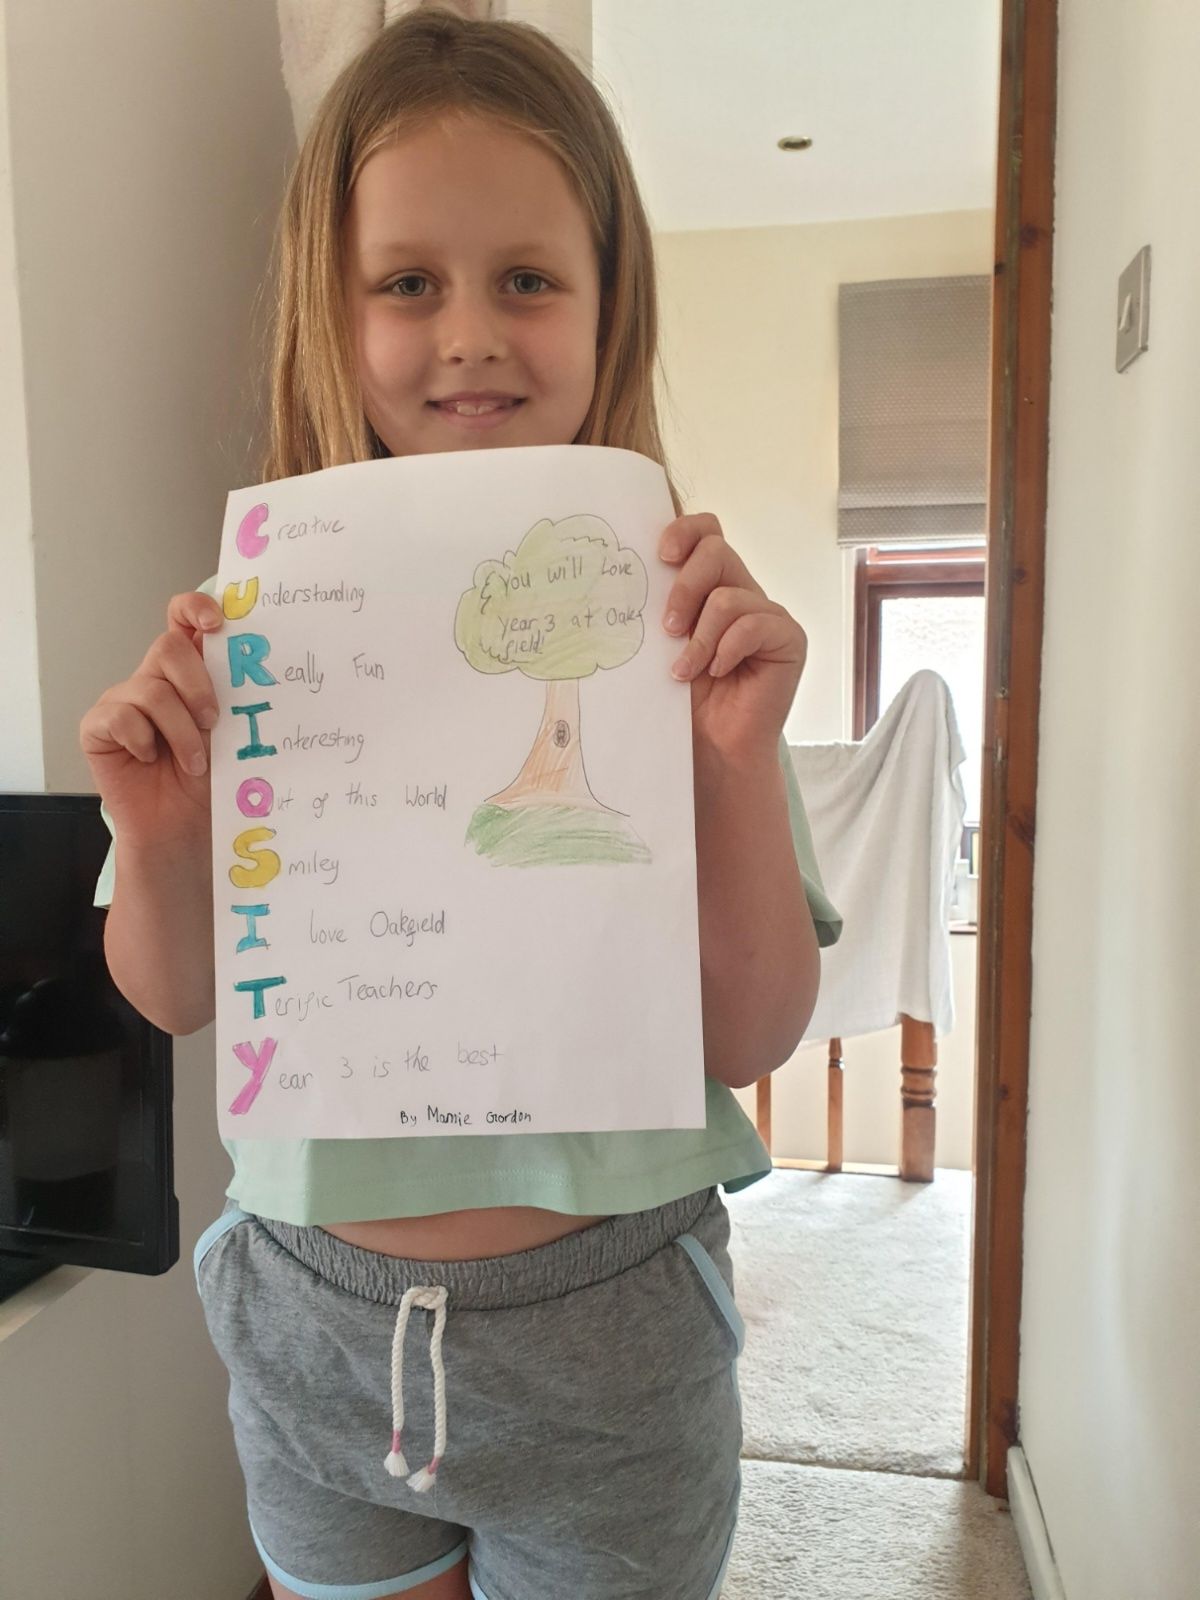 Creative
Understanding
Really Fun
Interesting
Out of this World
Smiley
I love Oakfield
Terific Teachers
Year 3 is the best
By Mamie Gordon
you will Love
year 3 at Oak-
field!